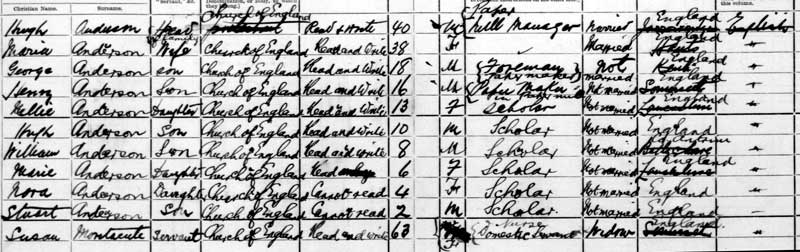 Christian Name. Surname.
Hugh Anderson Head Church of England Read & Write 40 M Paper Mill Manager Married England English
Maria Anderson Wife Church of England Read and Write 38 F Married England "
George Anderson Son Church of England Read and Write 18 M Foreman Paper maker Not married England "
Henry Anderson Son Church of England Read and Write 16 M Paper Maker in paper mill Not married England "
Nellie Anderson Daughter Church of England Read and Write 13 F Scholar Not married England "
Hugh Anderson Son Church of England Read and Write 10 M Scholar Not married England "
William Anderson Son Church of England Read and write 8 M Scholar Not married "
Marie Anderson Daughter Church of England Read 6 F Scholar Not married England "
Nora Anderson Daughter Church of England Cannot read 4 F Scholar Not married England "
Stuart Anderson Son Church of England Cannot read 2 M Scholar Not married England "
Susan Montacute Servant Church of England Read and write 63 F Nurse Domestic Servant Widow England "